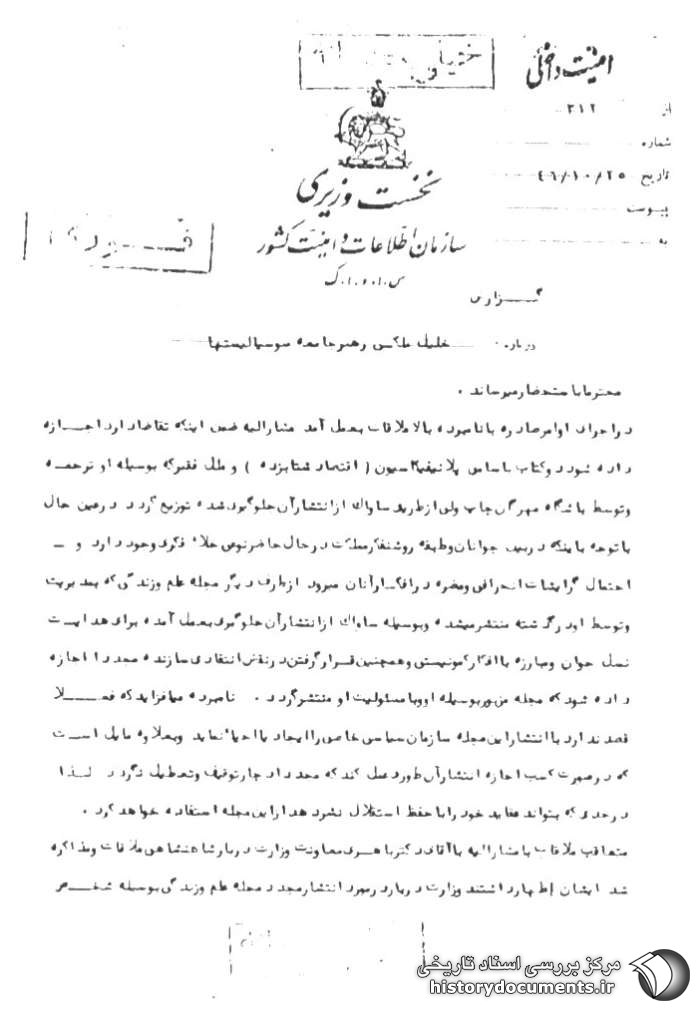 خیلی
امنیت داخلی
از ۳۱۲
شماره
تاریخ ۴۶/۱۰/۲۵
پیوست
به
نخست وزیری
سازمان اطلاعات و امنیت کشور
س.ا.و.ا.ک
گزارش
درباره: خلیل ملکی رهبر جامعه سوسیالیستها
محترما باستحضار میرساند.
در اجرای اوامر صادره با نامبرده بالا ملاقات بعمل آمد مشارالیه ضمن اینکه تقاضا دارد اجازه
داده شود دو کتاب باسامی پلانیفیکاسیون ( اقتصاد شتابزده ) و ملل فقیر که بوسیله او ترجمه
و توسط باشگاه مهرگان چاپ ولی از طرف ساواک از انتشار آن جلوگیری شده توزیع گردد در عین حال
با توجه باینکه در بین جوانان و طبقه روشنفکر مملکت در حال حاضر نوعی خلاء فکری وجود دارد و ـ
احتمال گرایشات انحرافی و مضره در افکار آنان میرود از طرف دیگر مجله علم و زندگی که بمدیریت
و توسط او در گذشته منتشر میشده و بوسیله ساواک از انتشار آن جلوگیری بعمل آمده برای هدایت
نسل جوان و مبارزه با افکار کمونیستی و همچنین قرار گرفتن در نقش انتقادی سازنده مجددا اجازه
داده شود که مجله مزبور بوسیله او و با مسئولیت او منتشر گردد. نامبرده میافزاید که فعلا
قصد ندارد با انتشار این مجله سازمان سیاسی خاصی را ایجاد یا احیا نماید و بعلاوه مایل است
که در صورت کسب اجازه انتشار آن طور عمل کند که مجددا دچار توقیف و تعطیل نگردد لذا
در حدی که بتواند عقاید خود را با حفظ استقلال نشر دهد از این مجله استفاده خواهد کرد.
متعاقب ملاقات با مشارالیه با آقای دکتر باهری معاونت وزارت دربار شاهنشاهی ملاقات و مذاکره
شد ایشان اظهار داشتند وزارت دربار در مورد انتشار مجدد مجله علم و زندگی بوسیله شخص
مرکز بررسی اسناد تاریخی
historydocuments.ir